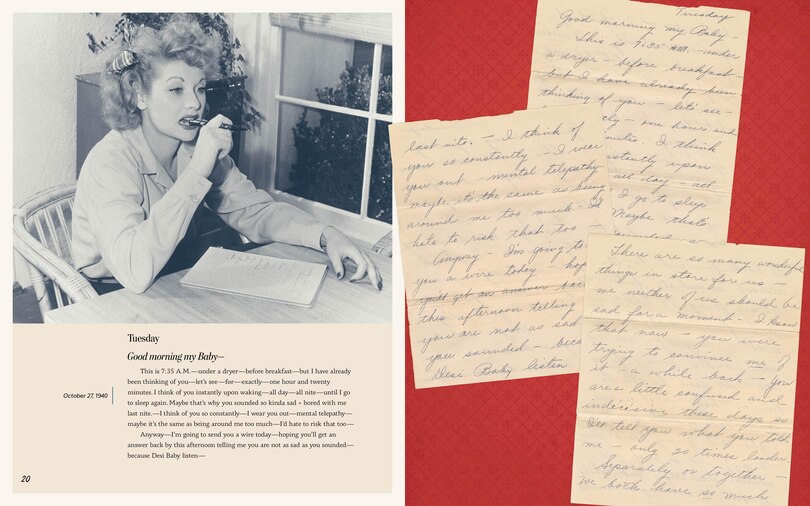 Tuesday
Good morning my Baby—
This is 7:35 A.M.—under a dryer—before breakfast—but I have already
been thinking of you—let's see—for—exactly—one hour and twenty
minutes. I think of you instantly upon waking—all day—all nite—until I go
to sleep again. Maybe that's why you sounded so kinda sad + bored with me
last nite.—I think of you so constantly—I wear you out—mental telepathy—
maybe it's the same as being around me too much—I'd hate to risk that too—
Anyway—I'm going to send you a wire today—hoping you'll get an
answer back by this afternoon telling me you are not as sad as you sounded—
because Desi Baby listen—
October 27, 1940
20
Tuesday
Good morning my Baby –
This is 7:35 A.M. – under
a dryer – before breakfast –
but I have already been
thinking of you – let's see –
one hour and
I think
upon
all day – all
I go to sleep
Maybe that's
last nite. – I think of
you so constantly – I wear
you out – mental telepathy
maybe it's the same as being
around me too much – I'd
hate to risk that too –
Anyway – I'm going to
you a wire today – hop
you'll get an answer bac
this afternoon telling
you are not as sad
you sounded – beca
Desi Baby listen
There are so many wonderful
things in store for us –
we neither of us should be
sad for a moment – I know
that now – you were
trying to convince me of
it – a while back – you
are a little confused and
indecisive these days so
let tell you what you told
me – only 20 times louder.
Separately or together –
we both have so much